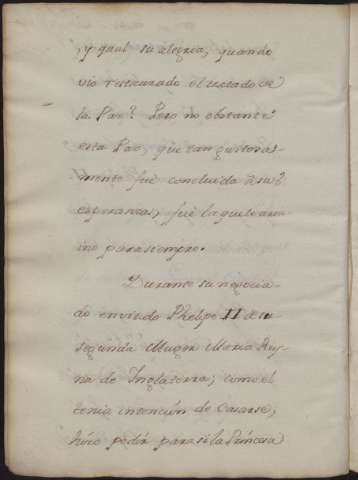 , y qual su alegria, quando
vio restaurado el tratado de
la Paz? Pero no obstante
esta Paz, que tan gustosa-
mente fuè concluida à sus
esperanzas, fuè la que le arru-
inò para siempre.
Durante su negocia-
do enviudò Phelipe II de su
segunda Muger Maria Rey-
na de Inglaterra; como el
tenia intencion de Casarse,
hizo pedir para si la Princesa